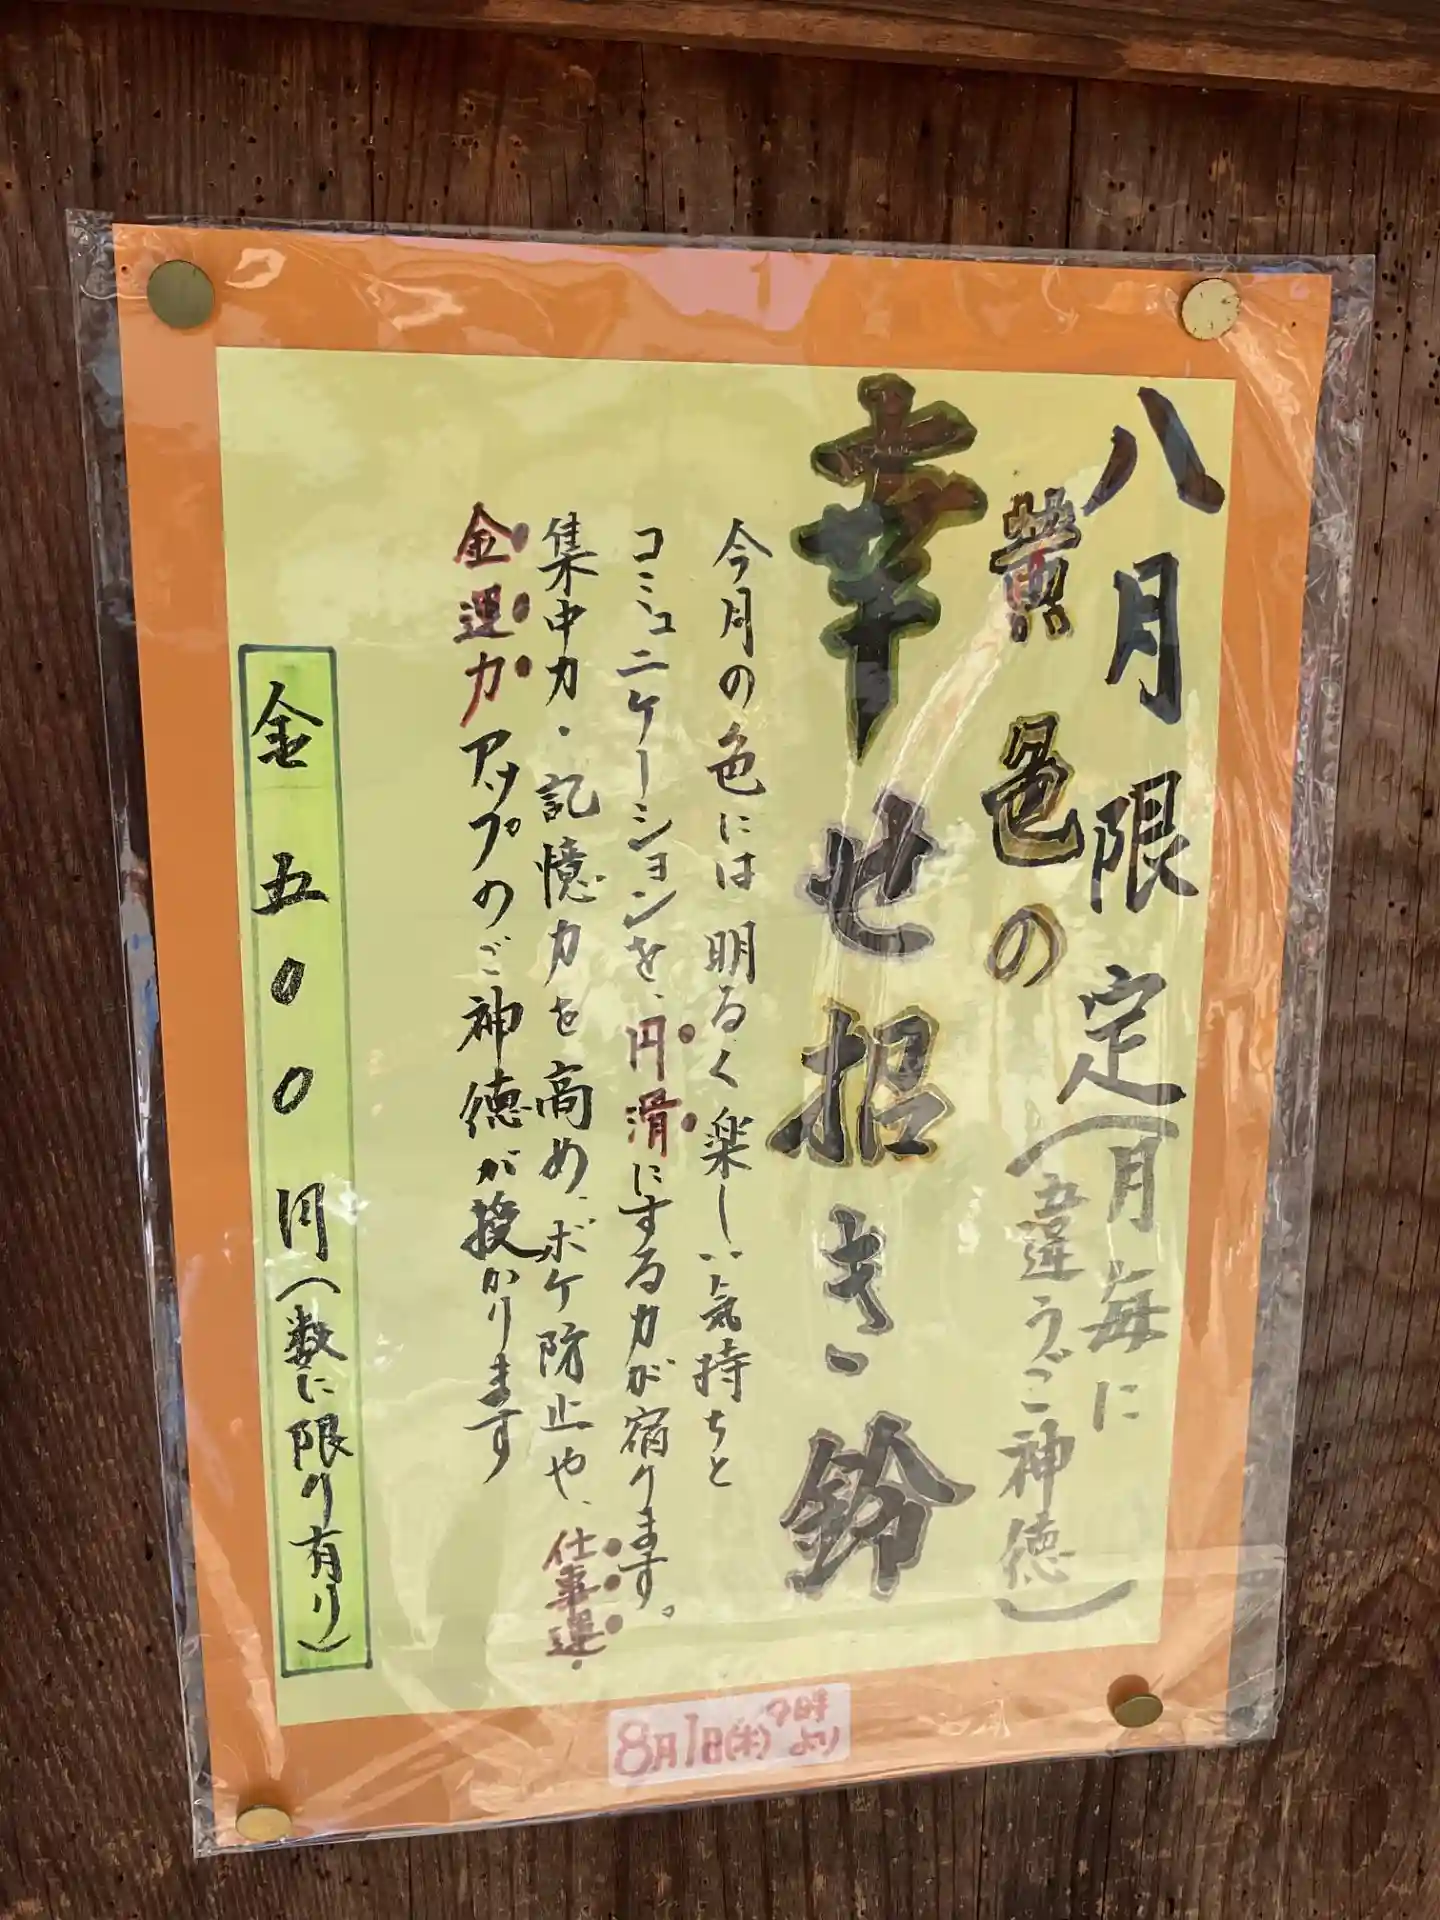 八月限定(月毎に
違うご神徳)
黄色の
幸せ招き鈴
今月の色には明るく楽しい気持ちと
コミュニケーションを、円滑にする力が宿ります。
集中力・記憶力を高め、ボケ防止や、仕事運・
金運力アップのご神徳が授かります
金五00円(数に限り有り)
8月1日(木)9時より